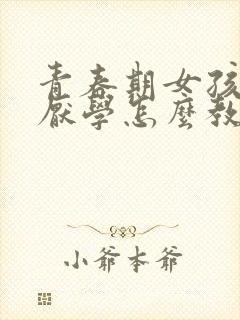 青春期女孩
厭學怎麼教
小爺本爺